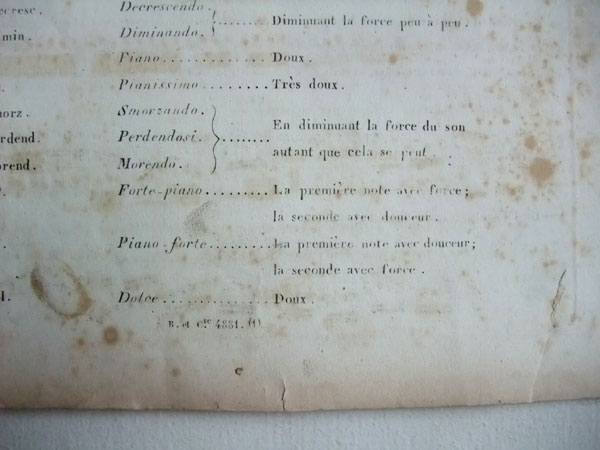 Decrescendo.
Diminuant la force peu à peu.
min. Diminando.
Piano............. Doux.
Pianissimo......... Très doux.
norz. Smorzando.
En diminuant la force du son
rdend. Perdendosi. ........
autant que cela se peut.
orend. Morendo.
Forte-piano......... La première note avec force;
la seconde avec douceur.
Piano-forte......... La première note avec douceur;
la seconde avec force.
Dolce.............. Doux.
B. et Cie 4881. (1)